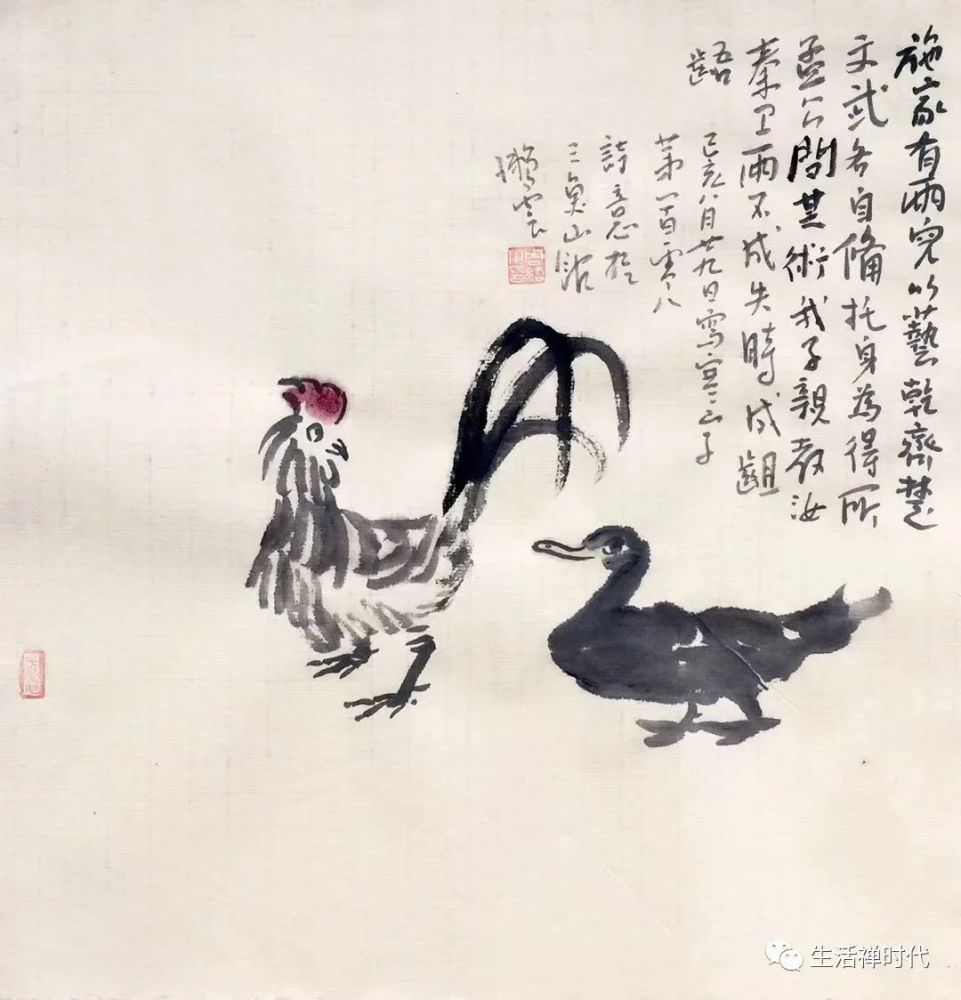 施家有兩兒以藝乾齊楚
文武各自備托身為得所
孟公問其術我子親教汝
秦卫兩不成失時成齟
齬
己亥八月廿九日寫寒山子
第一百零八
詩意於
三奥山
懶雲
生活禅时代